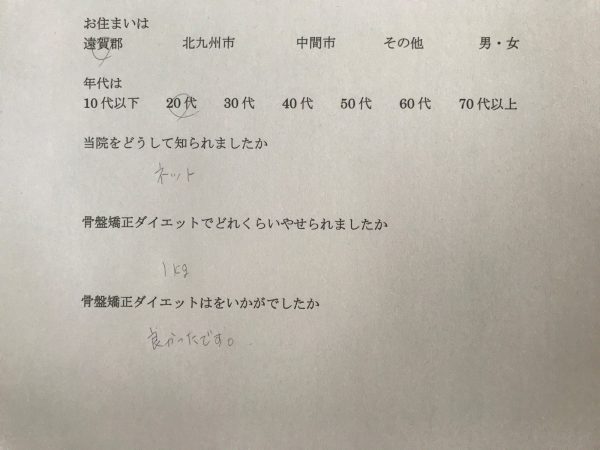 お住まいは
遠賀郡 北九州市 中間市 その他 男・女
年代は
10代以下 20代 30代 40代 50代 60代 70代以上
当院をどうして知られましたか
ネット
骨盤矯正ダイエットでどれくらいやせられましたか
1kg
骨盤矯正ダイエットはをいかがでしたか
良かったです。